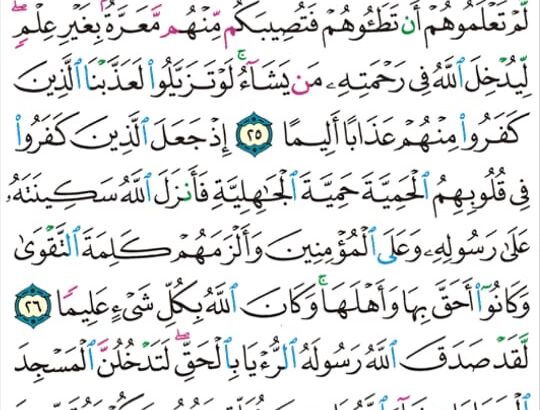 لَّمْ تَعْلَمُوهُمْ أَن تَطَـُٔوهُمْ فَتُصِيبَكُم مِّنْهُم مَّعَرَّةٌۢ بِغَيْرِ عِلْمٍۖ
لِّيُدْخِلَ ٱللَّهُ فِى رَحْمَتِهِۦ مَن يَشَآءُۚ لَوْ تَزَيَّلُوا۟ لَعَذَّبْنَا ٱلَّذِينَ
كَفَرُوا۟ مِنْهُمْ عَذَابًا أَلِيمًا ٢٥ إِذْ جَعَلَ ٱلَّذِينَ كَفَرُوا۟
فِى قُلُوبِهِمُ ٱلْحَمِيَّةَ حَمِيَّةَ ٱلْجَـٰهِلِيَّةِ فَأَنزَلَ ٱللَّهُ سَكِينَتَهُۥ
عَلَىٰ رَسُولِهِۦ وَعَلَى ٱلْمُؤْمِنِينَ وَأَلْزَمَهُمْ كَلِمَةَ ٱلتَّقْوَىٰ
وَكَانُوٓا۟ أَحَقَّ بِهَا وَأَهْلَهَاۚ وَكَانَ ٱللَّهُ بِكُلِّ شَىْءٍ عَلِيمًا ٢٦
لَّقَدْ صَدَقَ ٱللَّهُ رَسُولَهُ ٱلرُّءْيَا بِٱلْحَقِّۖ لَتَدْخُلُنَّ ٱلْمَسْجِدَ